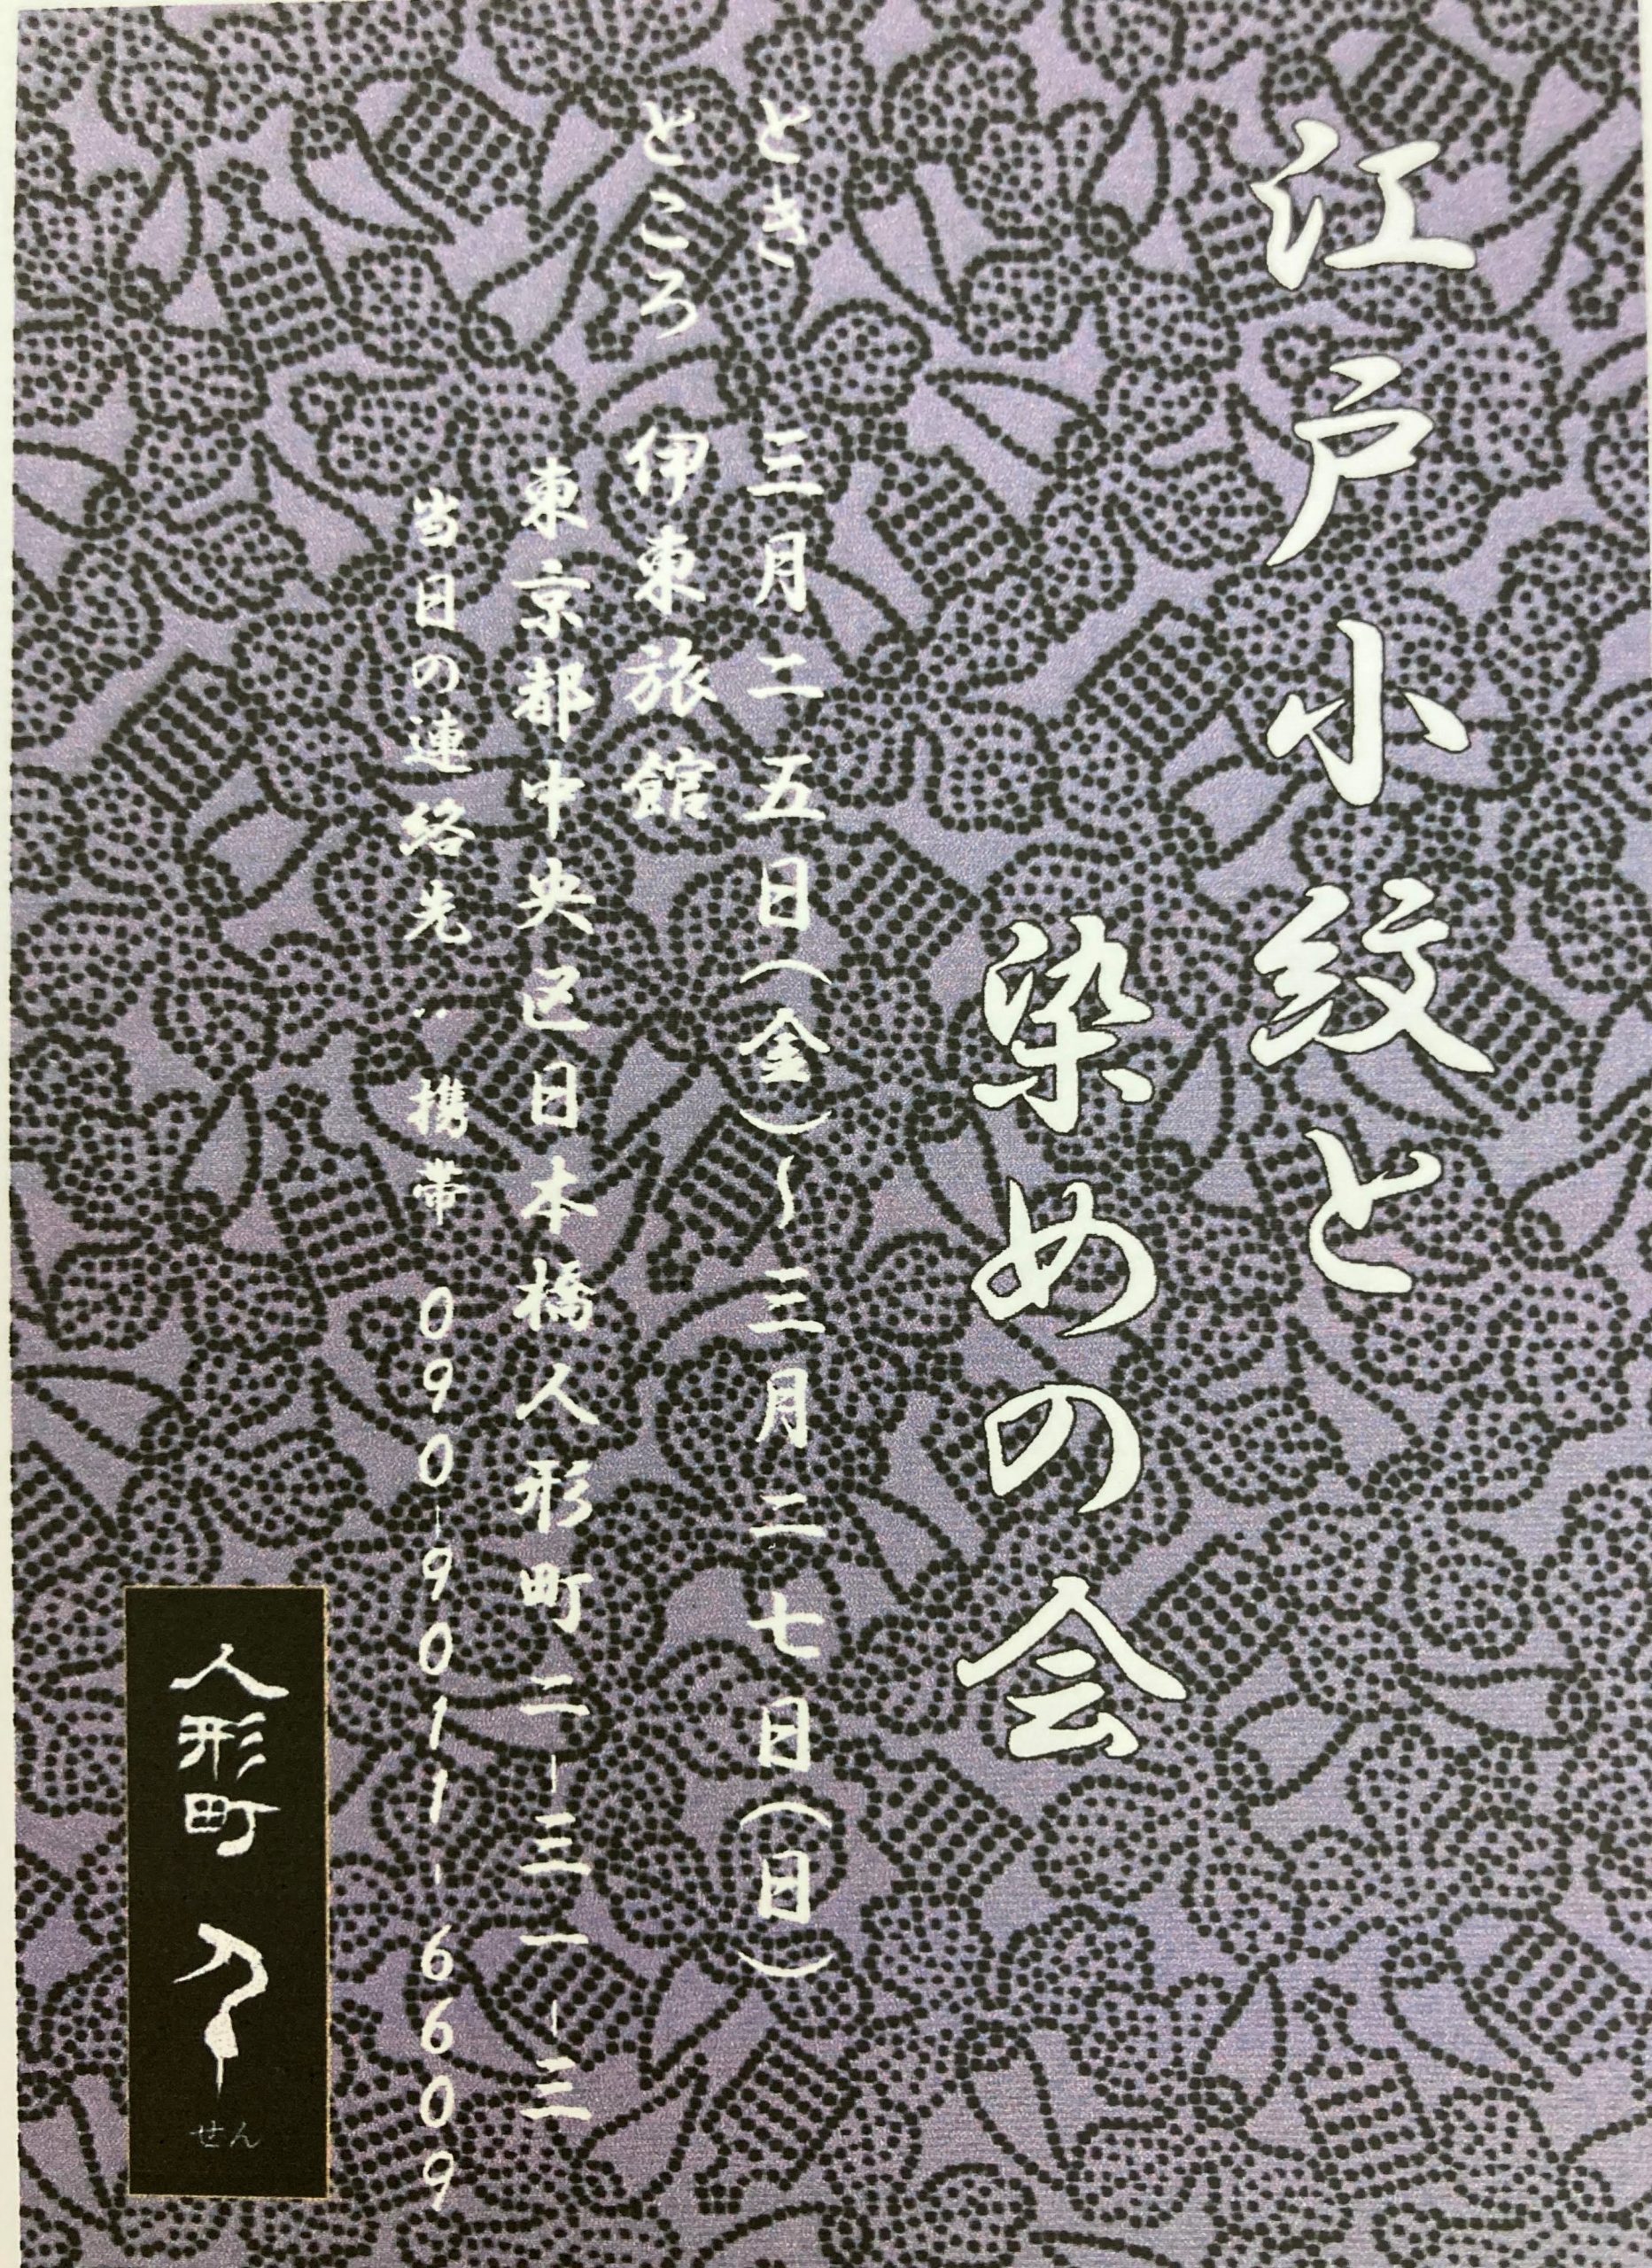 江戸小紋と
染めの会
とき 三月二五日(金)〜三月二七日(日)
ところ 伊東旅館
東京都中央区日本橋人形町二-三一-三
当日の連絡先: 携帯 090-9011-6609
人形町
せん